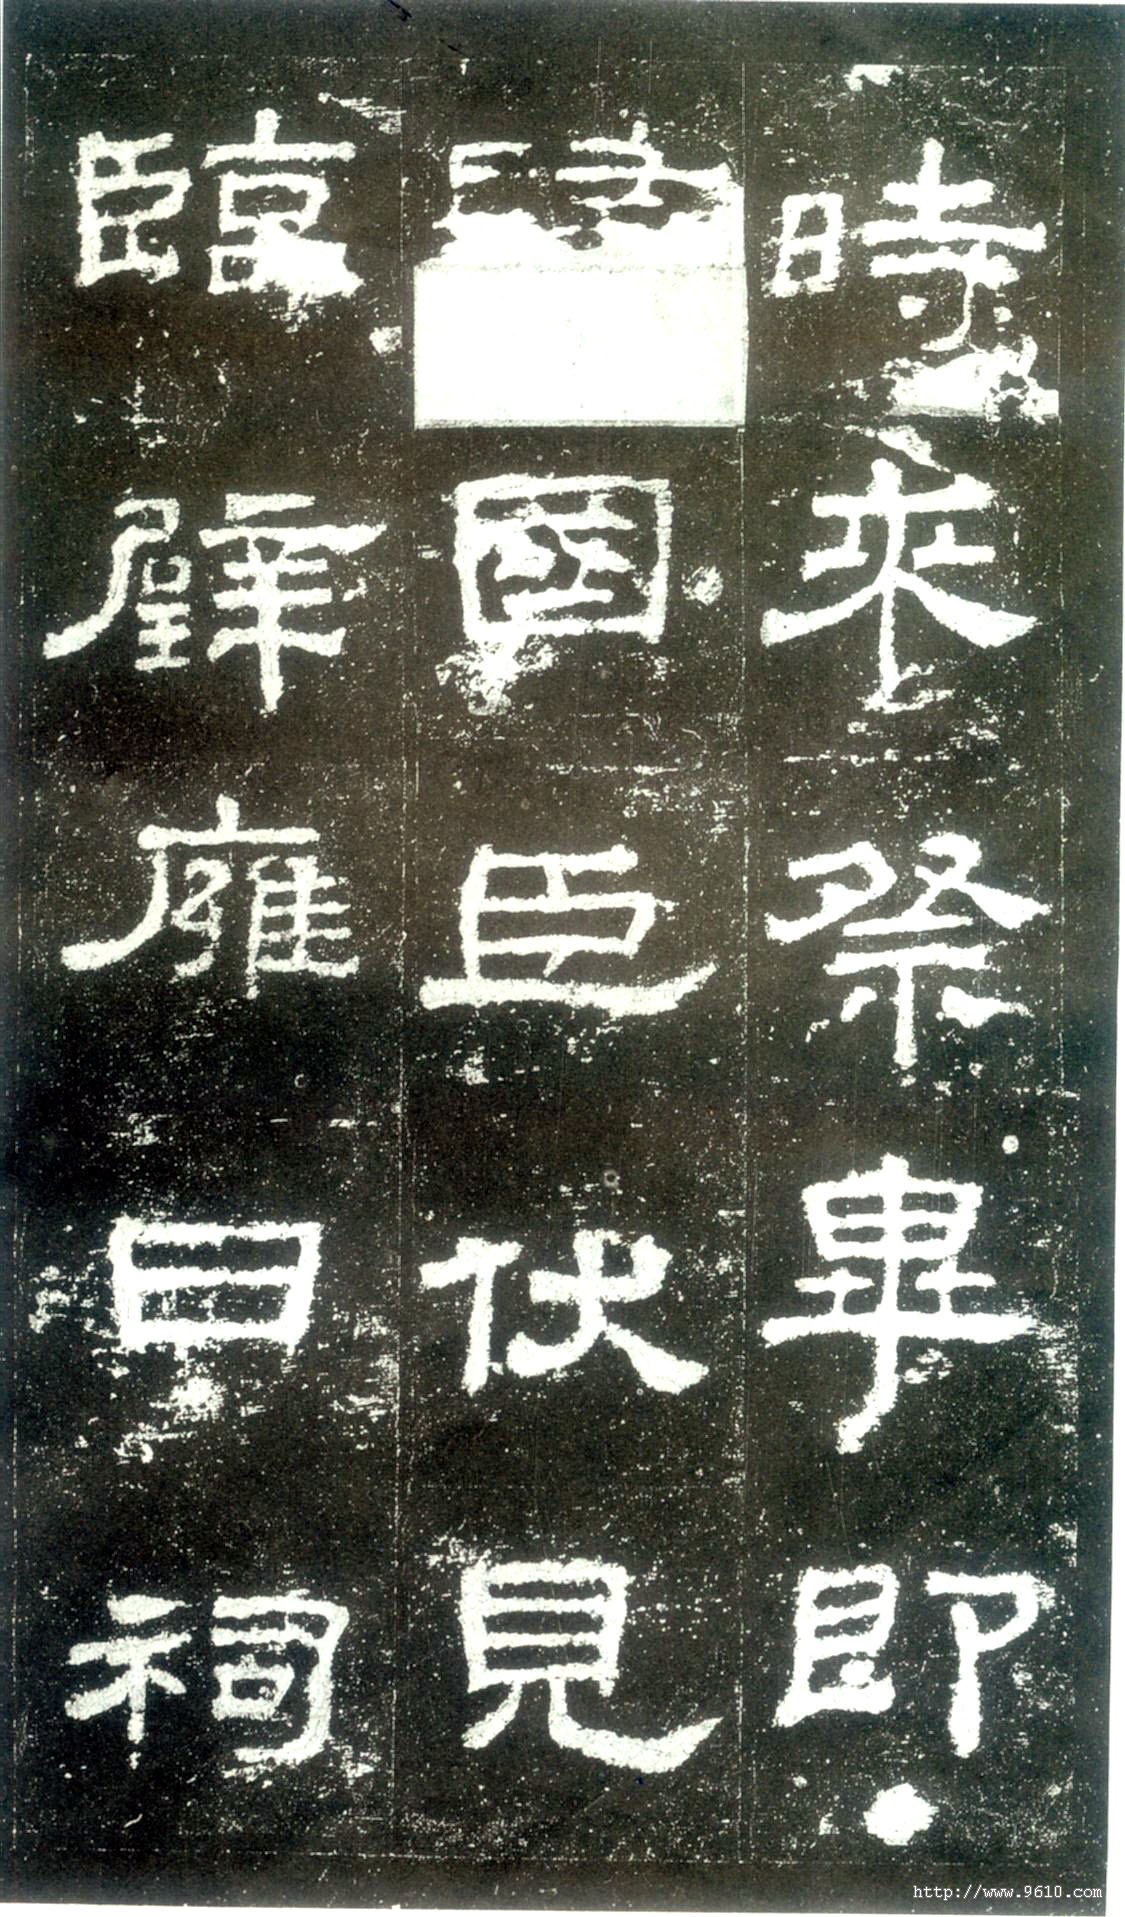 時來祭畢即
國臣伏見
臨辟雍日祠
http://www.9610.com